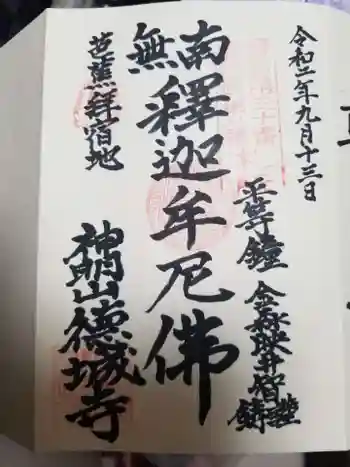 令和二年九月十三日
平等鐘 金森映井智謹鋳
南無釋迦牟尼佛
芭蕉拝宿地
神明山徳城寺